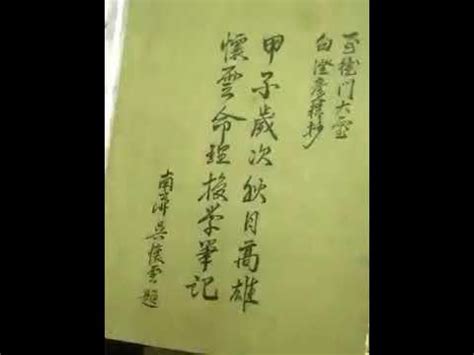 門大
白澄彥謹抄
甲子歲次秋月高雄
懷雲命理授学筆記
南 吳懷雲題